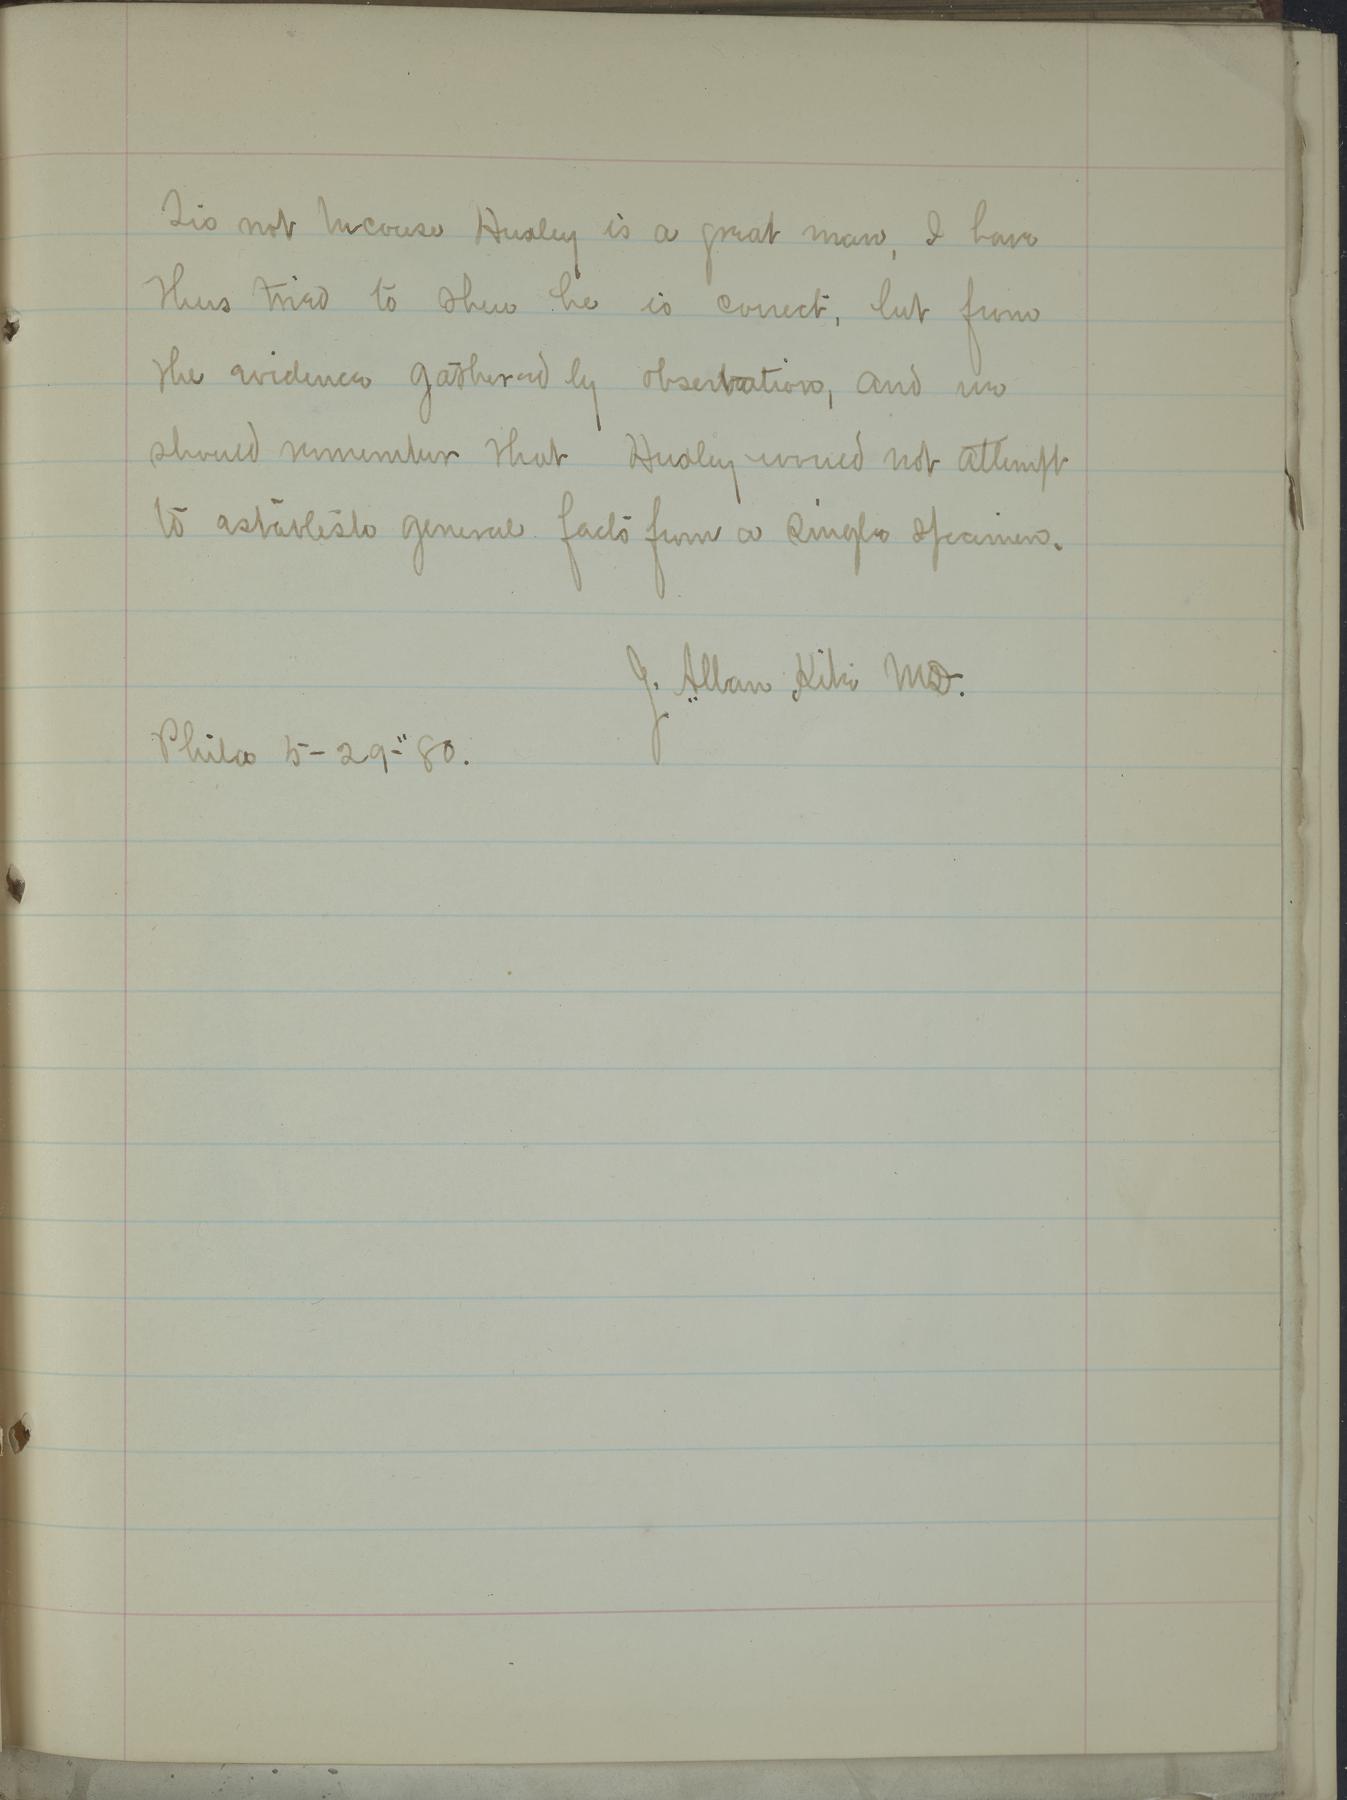 Tis not because Huxley is a great man, I have
thus tried to shew he is correct, but from
the evidence gathered by observation, and we
should remember that Huxley would not attempt
to establish general facts from a single specimen.
J. Allan Kite MD.
Phila 5-29-"80.